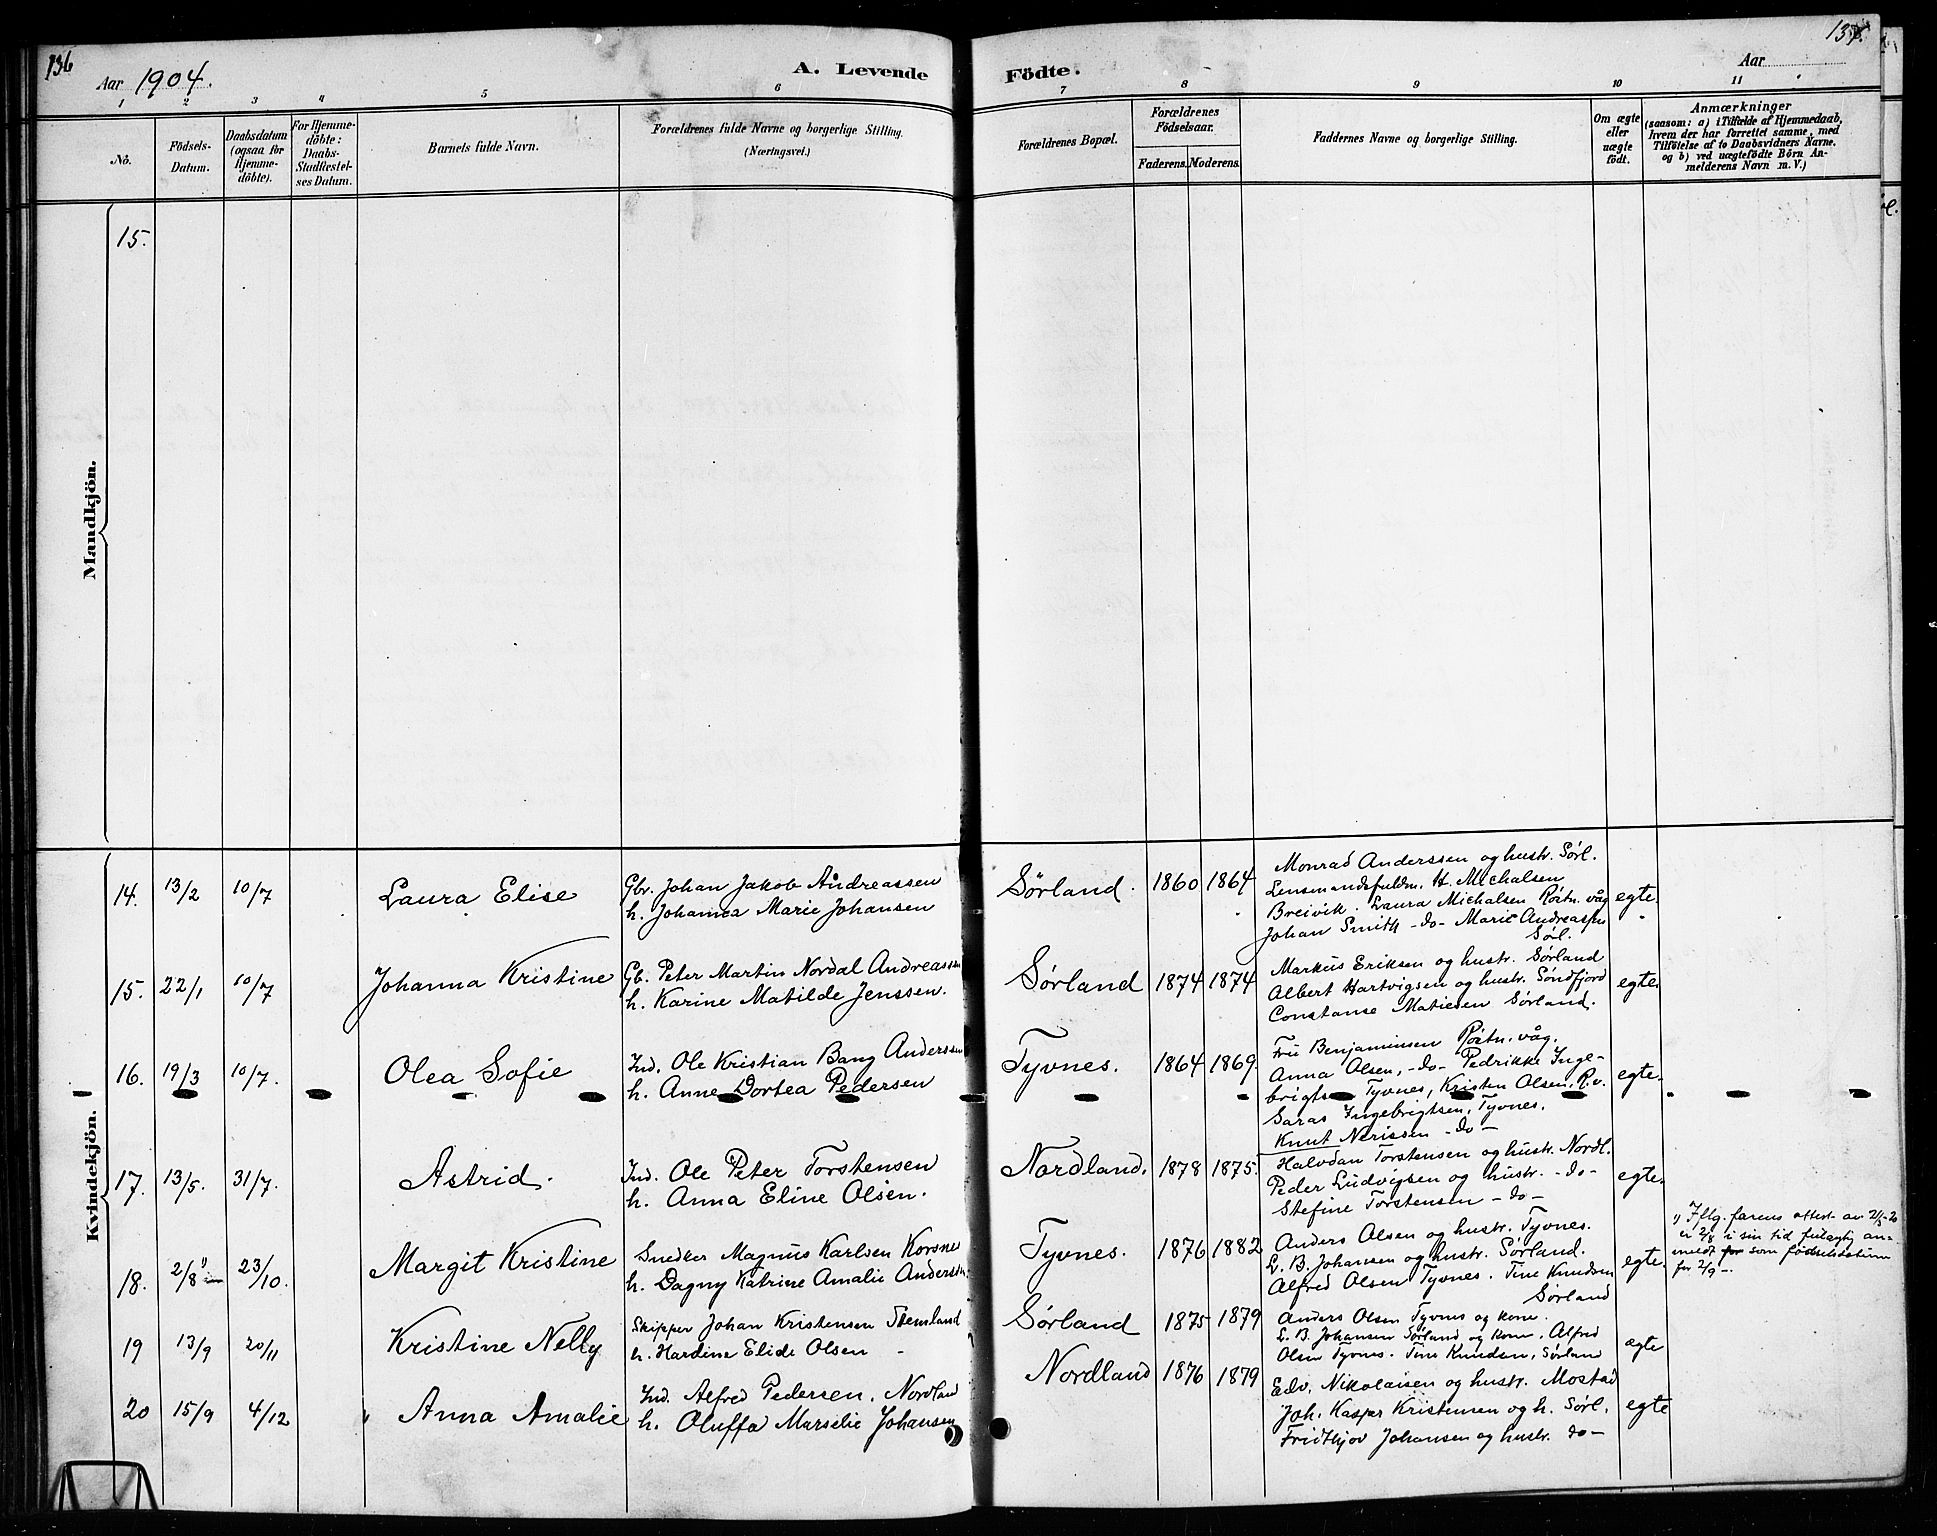 136
137.
Aar 1904.
A. Levende
Födte.
Aar
1 2 3 4 5 6 7 8 9 10 11
No.
Födsels-
Datum.
Daabsdatum
(ogsaa for
Hjemme-
döbte).
For Hjemme-
döbte:
Daabs-
Stadfæstel-
ses Datum.
Barnets fulde Navn.
Forældrenes fulde Navne og borgerlige Stilling.
(Næringsvei.)
Forældrenes Bopæl.
Forældrenes
Födselsaar.
Faderens. Moderens.
Faddernes Navne og borgerlige Stilling.
Om ægte
eller
uægte
födt.
Anmærkninger
(saasom: a) i Tilfælde af Hjemmedaab,
hvem der har forrettet samme, med
Tilföielse af to Daabsvidners Navne,
og b) ved uægtefödte Börn An-
melderens Navn m. V.)
Mandkjön.
15.
Kvindekjön.
14. 13/2 10/7 Laura Elise
Gbr. Johan Jakob Andreassen
h. Johanna Marie Johansen
Sørland. 1860 1864
Monrad Anderssen og hustr. Sørl.
Lensmandsfuldm. H. Michalsen
Breivik. Laura Michalsen Røstn. våg
Johan Smith -do- Marie Andreassen
Sørl.
egte.
15. 22/1 10/7 Johanna Kristine
Gb. Peter Martin Nordal Andreassen
h. Karine Matilde Jenssen.
Sørland 1874 1874
Markus Eriksen og hustr. Sørland
Albert Hartvigsen og hustr. Søndfjord
Constanse Matiesen Sørland.
egte.
16. 19/3 10/7. Olea Sofie
Ind. Ole Kristian Bang Anderssen
h. Anne Dortea Pedersen
Tyvnes. 1864 1869.
Fru Benjaminsen Røstn. våg.
Anna Olsen, -do- Pedrikke Inge-
brigtsen Tyvnes, Kristen Olsen, R.v.
Saras Ingebrigtsen, Tyvnes,
Knut Nerissen -do-
egte.
17. 13/5. 31/7. Astrid.
Ind. Ole Peter Torstensen
h. Anna Eline Olsen.
Nordland. 1878 1875.
Halvdan Torstensen og hustr. Nordl.
Peder Ludvigsen og hustr. -do-
Stefine Torstensen -do-
egte.
18. 2/8 1) 23/10. Margit Kristine
Snedker Magnus Karlsen Korsnes
h. Dagny Katrine Amalie Anderssen
Tyvnes. 1876 1882
Anders Olsen og hustr. Tyvnes.
L. B. Johansen og hustr. Sørland.
Alfred Olsen Tyvnes. Tine Knudsen
Sørland
egte.
1) Iflg. farens attest av 2/5-20
er 2/8 i sin tid feilagtig an-
meldt for som fødselsdatum
for 2/9-.
19 13/9 20/11 Kristine Nelly
Skipper Johan Kristensen Stemland
h. Hardine Elide Olsen -
Sørland 1875 1879
Anders Olsen Tyvnes og kone.
L. B. Johansen Sørland og kone, Alfred
Olsen Tyvnes. Tine Knudsen, Sørland
egte
20 15/9 4/12 Anna Amalie
Ind. Alfred Pedersen, Nordland
h. Oluffa Marselie Johansen
Nordland 1876 1879
Edv. Nikolaisen og hustr. Mostad
Joh. Kaspar Kristensen og h. Sørl.
Fridthjov Johansen og hustr. do-
egte